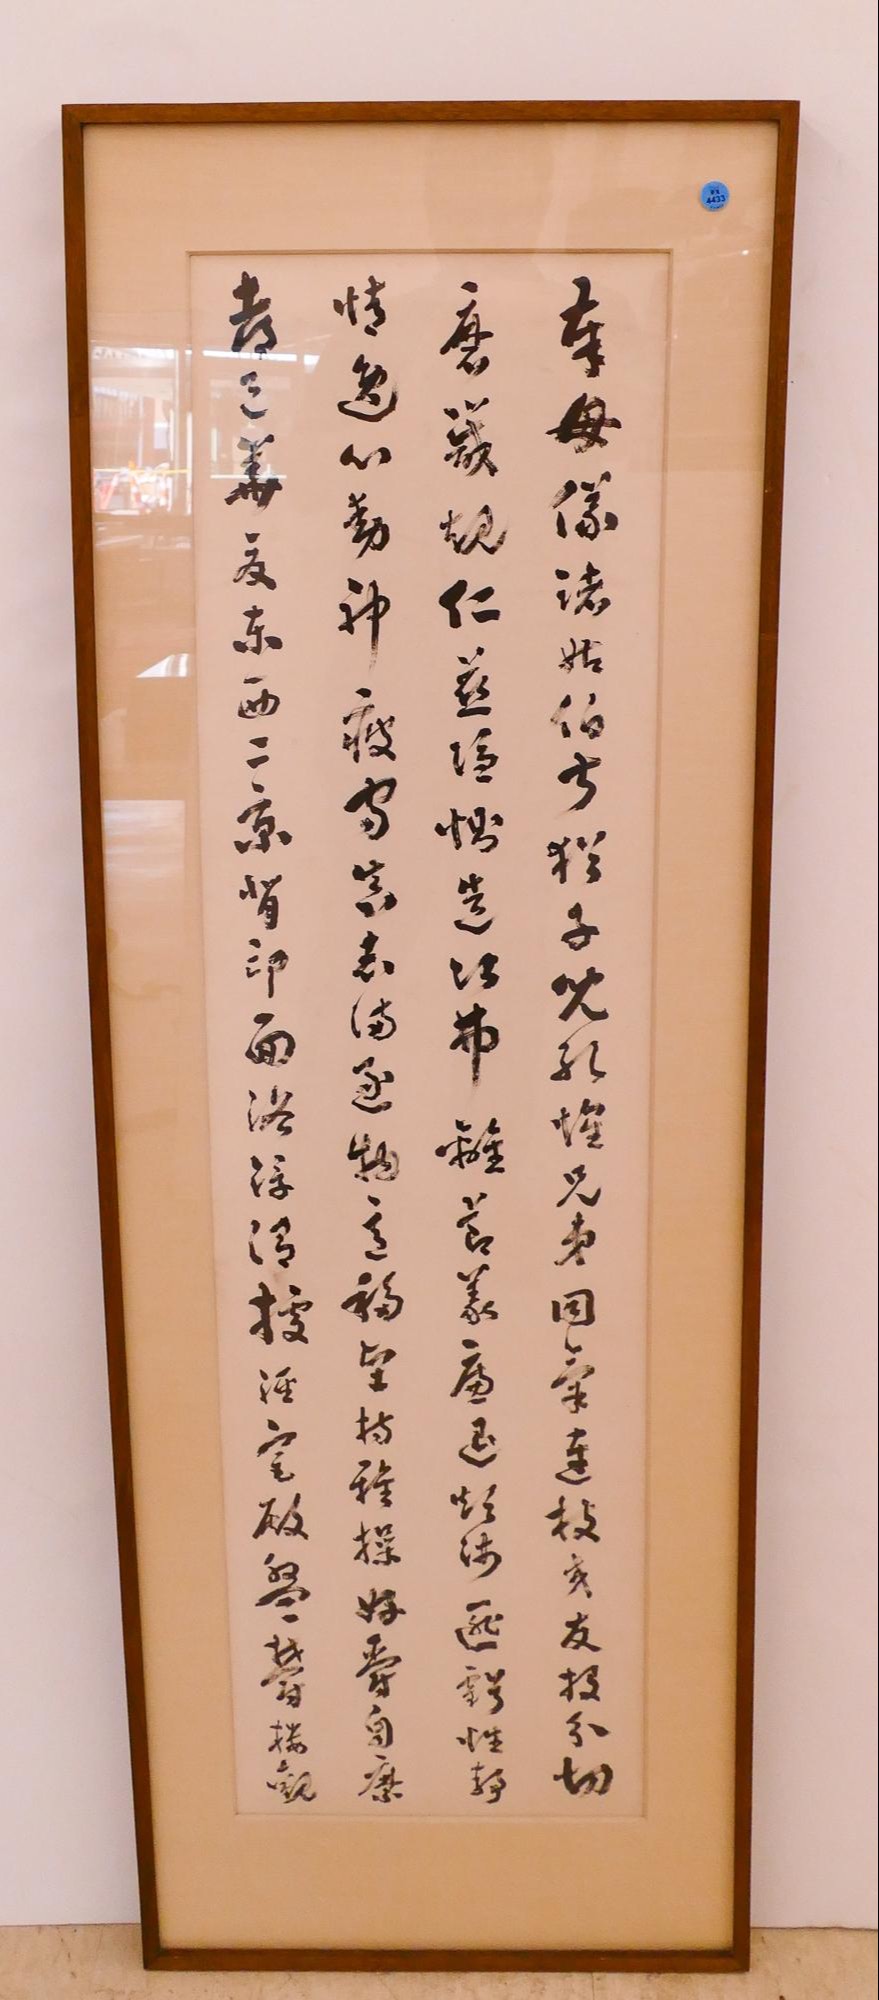 奉母儀諸姑伯叔猶子比兒孔懷兄弟同氣連枝交友投分切
磨箴規仁慈隱惻造次弗離節義廉退顛沛匪虧性靜
情逸心動神疲守真志滿逐物意移堅持雅操好爵自縻
都邑華夏東西二京背邙面洛浮渭據涇宮殿盤鬱樓觀
4433